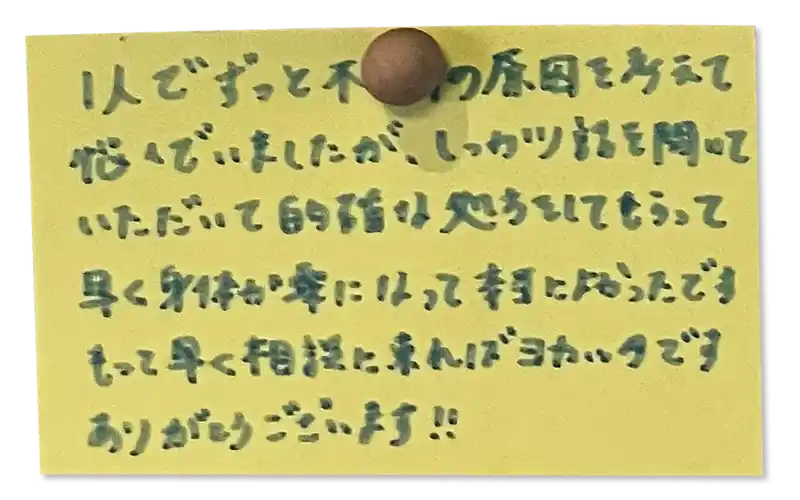 1人でずっと不の原因を考えて
悩んでいましたが、しっかり話を聞いて
いただいて的確な処方をしてもらって
早く身体が楽になって本当によかったです
もっと早く相談に来ればヨカッタです
ありがとうございます!!